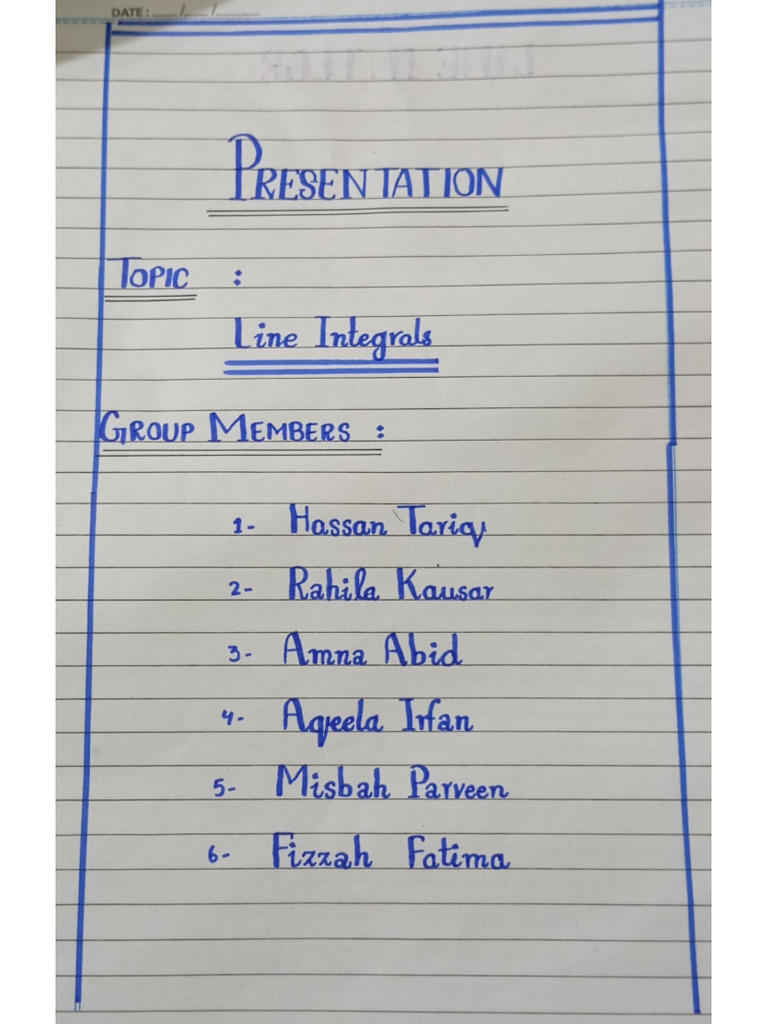 DATE: ___/___/___
PRESENTATION
TOPIC :
Line Integrals
GROUP MEMBERS :
1- Hassan Tariq
2- Rahila Kausar
3- Amna Abid
4- Aqeela Irfan
5- Misbah Parveen
6- Fizzah Fatima